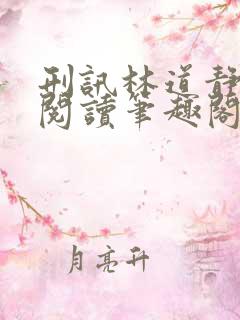 刑訊林道靜
閱讀筆趣閣
月亮升